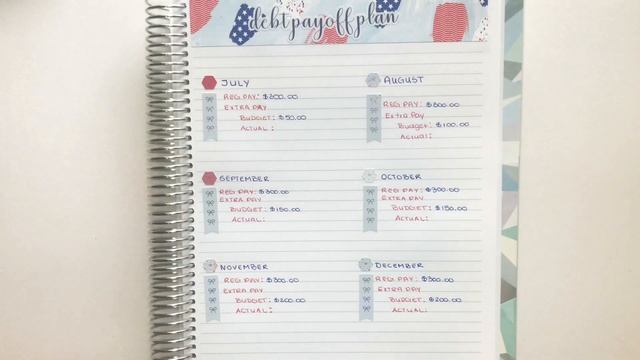 debt payoff plan
JULY
REG. PAY: $300.00
EXTRA PAY
BUDGET: $50.00
ACTUAL:
AUGUST
REG PAY: $300.00
EXTRA PAY
BUDGET: $100.00
ACTUAL:
SEPTEMBER
REG. PAY: $300.00
EXTRA PAY
BUDGET: $150.00
ACTUAL:
OCTOBER
REG. PAY: $300.00
EXTRA PAY
BUDGET: $150.00
ACTUAL:
NOVEMBER
REG PAY: $300.00
EXTRA PAY
BUDGET: $200.00
ACTUAL:
DECEMBER
REG. PAY: $300.00
EXTRA PAY
BUDGET: $200.00
ACTUAL: